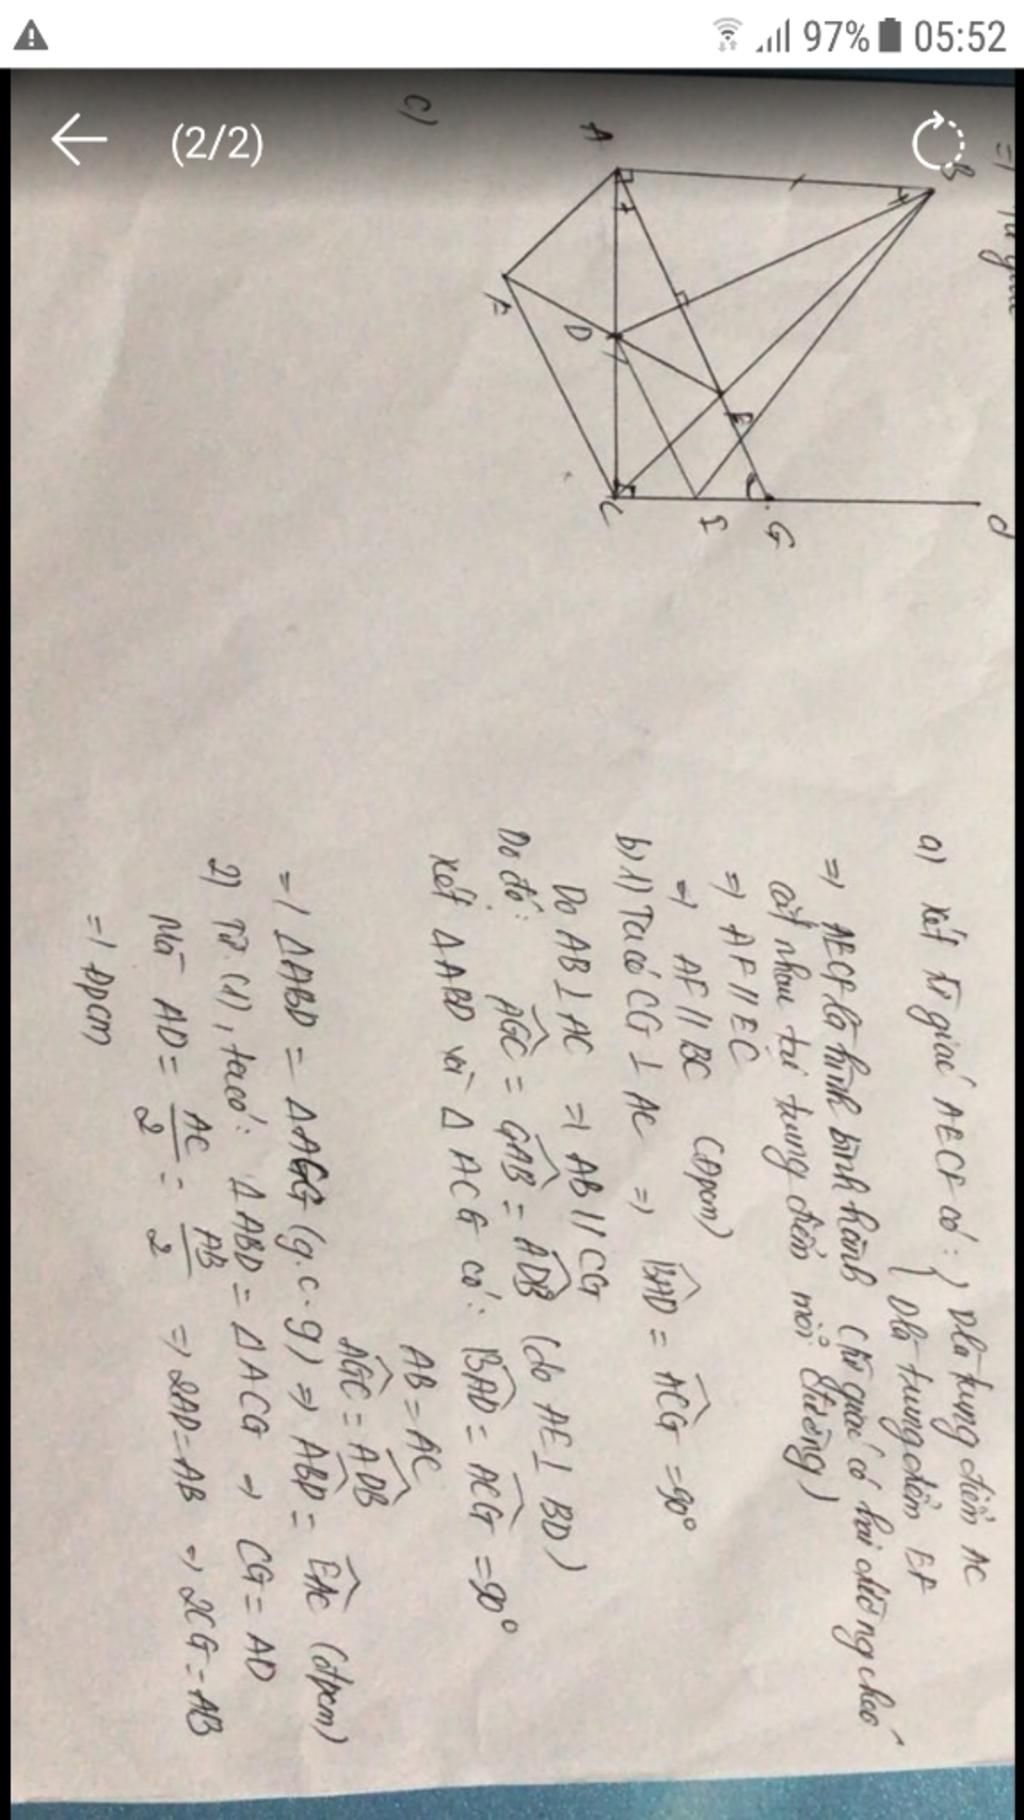 97% 05:52
(2/2)
a) Xét tứ giác AECF có: { D là trung điểm AC
D là trung điểm EF
=> AECF là hình bình hành (tứ giác có hai đường chéo
cắt nhau tại trung điểm mỗi đường)
=> AF // EC
=> AF // BC (đpcm)
b) 1) Ta có CG ⊥ AC => BAD = ACG = 90°
Do AB ⊥ AC => AB // CG
Do đó: AGC = GAB = ADB (do AE ⊥ BD)
Xét Δ ABD và Δ ACG có: BAD = ACG = 90°
AB = AC
AGC = ADB
=> Δ ABD = Δ AGG (g.c.g) => ABD = EAC (đpcm)
2) Từ (1), ta có: Δ ABD = Δ ACG => CG = AD
Mà AD = AC/2 = AB/2 => 2AD = AB => 2CG = AB
=> Đpcm
c)
A
B
F
D
E
C
I
G
d